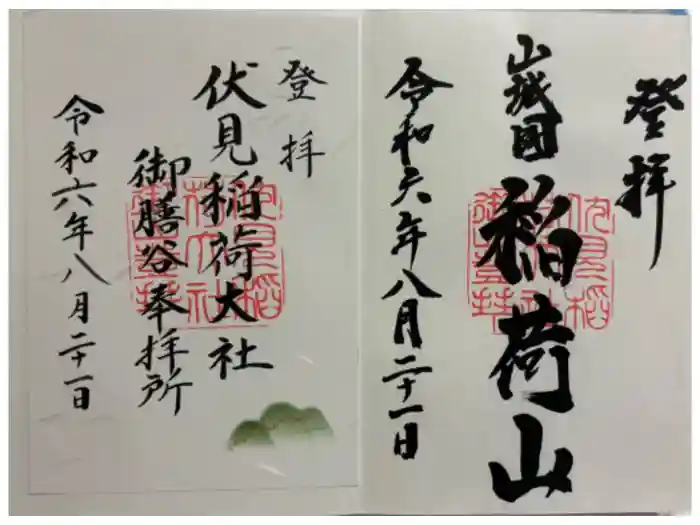 登拝
山城國
稲荷山
令和六年八月二十一日
登拝
伏見稲荷大社
御膳谷奉拝所
令和六年八月二十一日